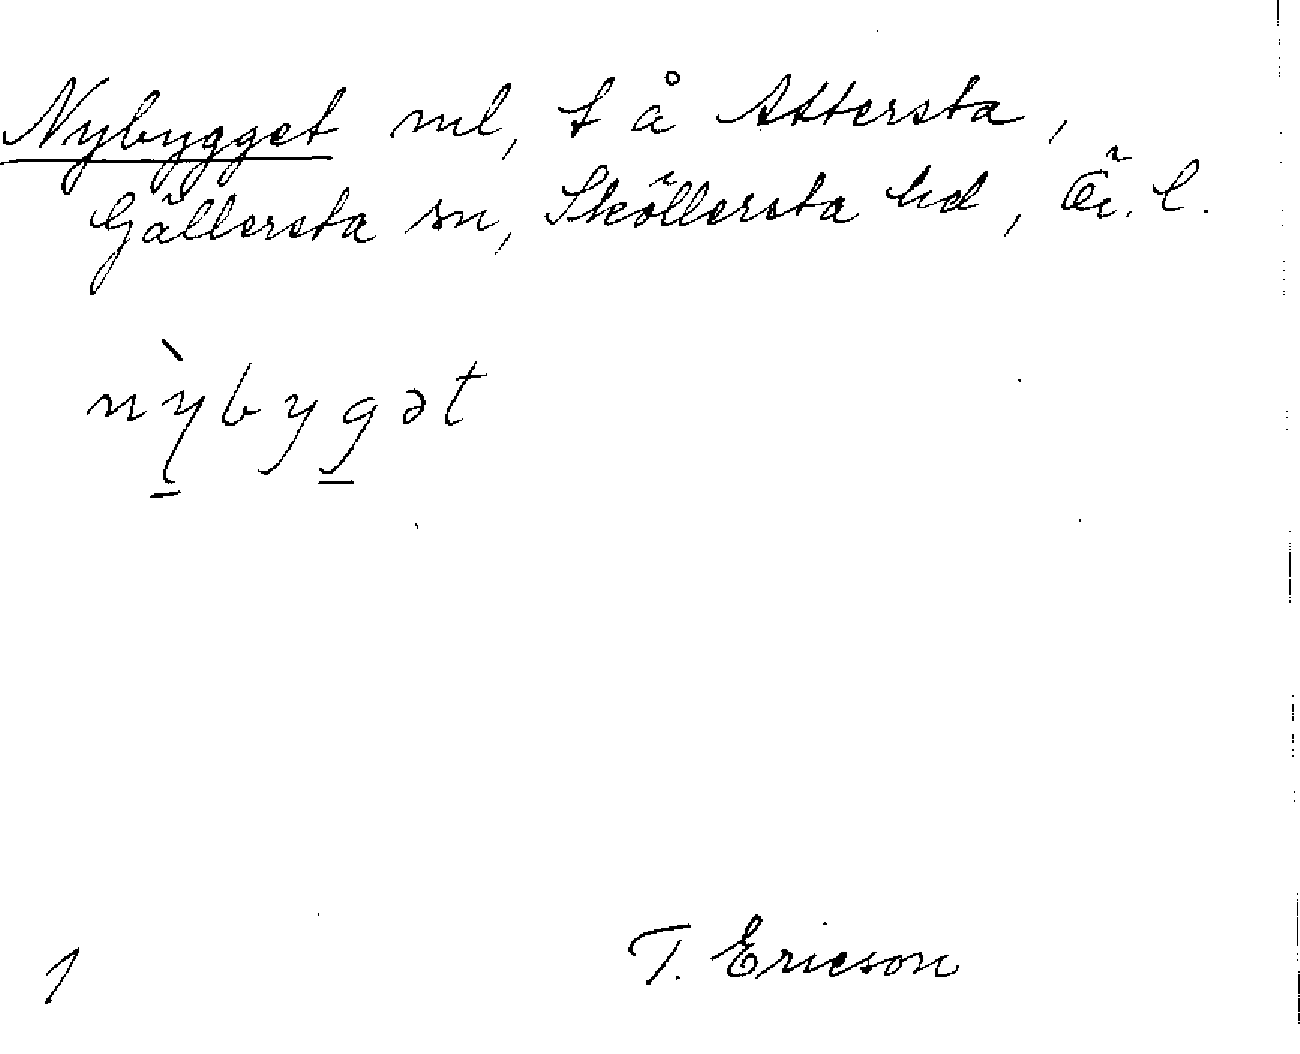 Nybygget ml, t å Attersta,
Gällersta sn, Sköllersta hd, Ör. l.
nỳ̱byg̱ət
1
T. Ericson